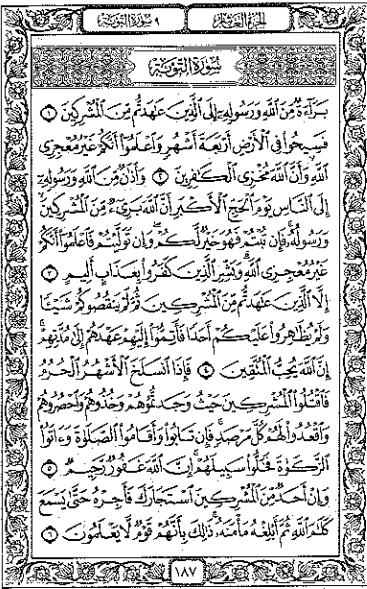 الجزء العاشر
٩ سورة التوبة
سورة التوبة
بَرَآءَةٌ مِّنَ ٱللَّهِ وَرَسُولِهِۦٓ إِلَى ٱلَّذِينَ عَٰهَدتُّم مِّنَ ٱلْمُشْرِكِينَ ١
فَسِيحُوا۟ فِى ٱلْأَرْضِ أَرْبَعَةَ أَشْهُرٍ وَٱعْلَمُوٓا۟ أَنَّكُمْ غَيْرُ مُعْجِزِى
ٱللَّهِ وَأَنَّ ٱللَّهَ مُخْزِى ٱلْكَٰفِرِينَ ٢ وَأَذَٰنٌ مِّنَ ٱللَّهِ وَرَسُولِهِۦٓ
إِلَى ٱلنَّاسِ يَوْمَ ٱلْحَجِّ ٱلْأَكْبَرِ أَنَّ ٱللَّهَ بَرِىٓءٌ مِّنَ ٱلْمُشْرِكِينَ
وَرَسُولُهُۥ فَإِن تُبْتُمْ فَهُوَ خَيْرٌ لَّكُمْ وَإِن تَوَلَّيْتُمْ فَٱعْلَمُوٓا۟ أَنَّكُمْ
غَيْرُ مُعْجِزِى ٱللَّهِ وَبَشِّرِ ٱلَّذِينَ كَفَرُوا۟ بِعَذَابٍ أَلِيمٍ ٣
إِلَّا ٱلَّذِينَ عَٰهَدتُّم مِّنَ ٱلْمُشْرِكِينَ ثُمَّ لَمْ يَنقُصُوكُمْ شَيْـًٔا
وَلَمْ يُظَٰهِرُوا۟ عَلَيْكُمْ أَحَدًا فَأَتِمُّوٓا۟ إِلَيْهِمْ عَهْدَهُمْ إِلَىٰ مُدَّتِهِمْ
إِنَّ ٱللَّهَ يُحِبُّ ٱلْمُتَّقِينَ ٤ فَإِذَا ٱنسَلَخَ ٱلْأَشْهُرُ ٱلْحُرُمُ
فَٱقْتُلُوا۟ ٱلْمُشْرِكِينَ حَيْثُ وَجَدتُّمُوهُمْ وَخُذُوهُمْ وَٱحْصُرُوهُمْ
وَٱقْعُدُوا۟ لَهُمْ كُلَّ مَرْصَدٍ فَإِن تَابُوا۟ وَأَقَامُوا۟ ٱلصَّلَوٰةَ وَءَاتَوُا۟
ٱلزَّكَوٰةَ فَخَلُّوا۟ سَبِيلَهُمْ إِنَّ ٱللَّهَ غَفُورٌ رَّحِيمٌ ٥
وَإِنْ أَحَدٌ مِّنَ ٱلْمُشْرِكِينَ ٱسْتَجَارَكَ فَأَجِرْهُ حَتَّىٰ يَسْمَعَ
كَلَٰمَ ٱللَّهِ ثُمَّ أَبْلِغْهُ مَأْمَنَهُۥ ذَٰلِكَ بِأَنَّهُمْ قَوْمٌ لَّا يَعْلَمُونَ ٦
١٨٧